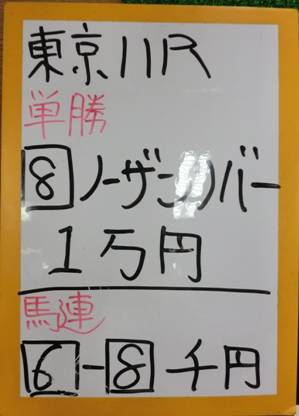 東京11R
単勝
8 ノーザンリバー
1万円
馬連
6-8 千円